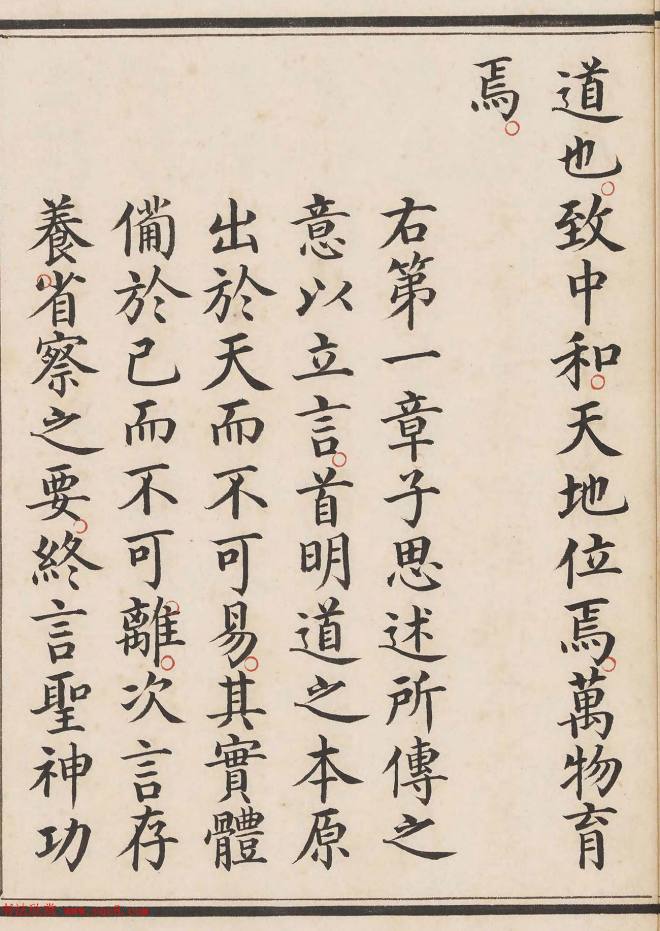 道也。致中和。天地位焉。萬物育
焉。
右第一章子思述所傳之
意以立言。首明道之本原
出於天而不可易。其實體
備於己而不可離。次言存
養。省察之要。終言聖神功